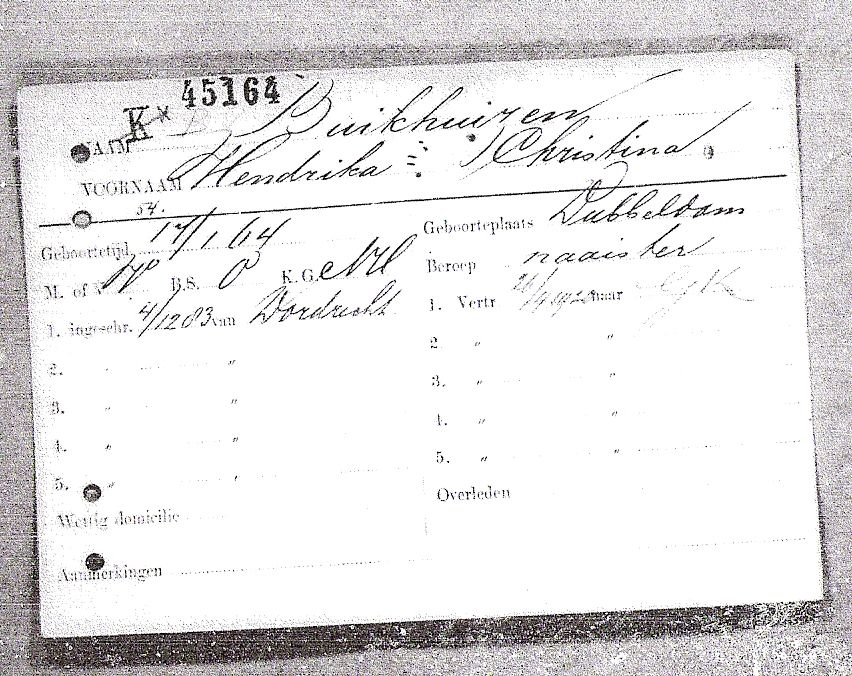 45164
K x
NAAM Buikhuizen
VOORNAAM Hendrika Christina
54.
Geboortetijd 17/1 64 Geboorteplaats Dubbeldam
M. of V. B.S. O K.G. NH Beroep naaister
1. ingeschr. 4/12 83 van Dordrecht 1. Vertr 26/4 1920 naar
2. " " 2 " "
3. " " 3. " "
4. " " 4. " "
5. " " 5. " "
Wettig domicilie Overleden
Aanmerkingen